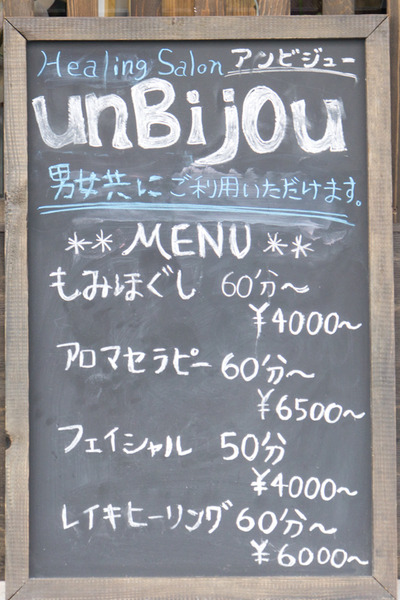 Healing Salon アンビジュー
unBijou
男女共にご利用いただけます。
** MENU **
もみほぐし 60分~
¥4000~
アロマセラピー 60分~
¥6500~
フェイシャル 50分
¥4000~
レイキヒーリング 60分~
¥6000~